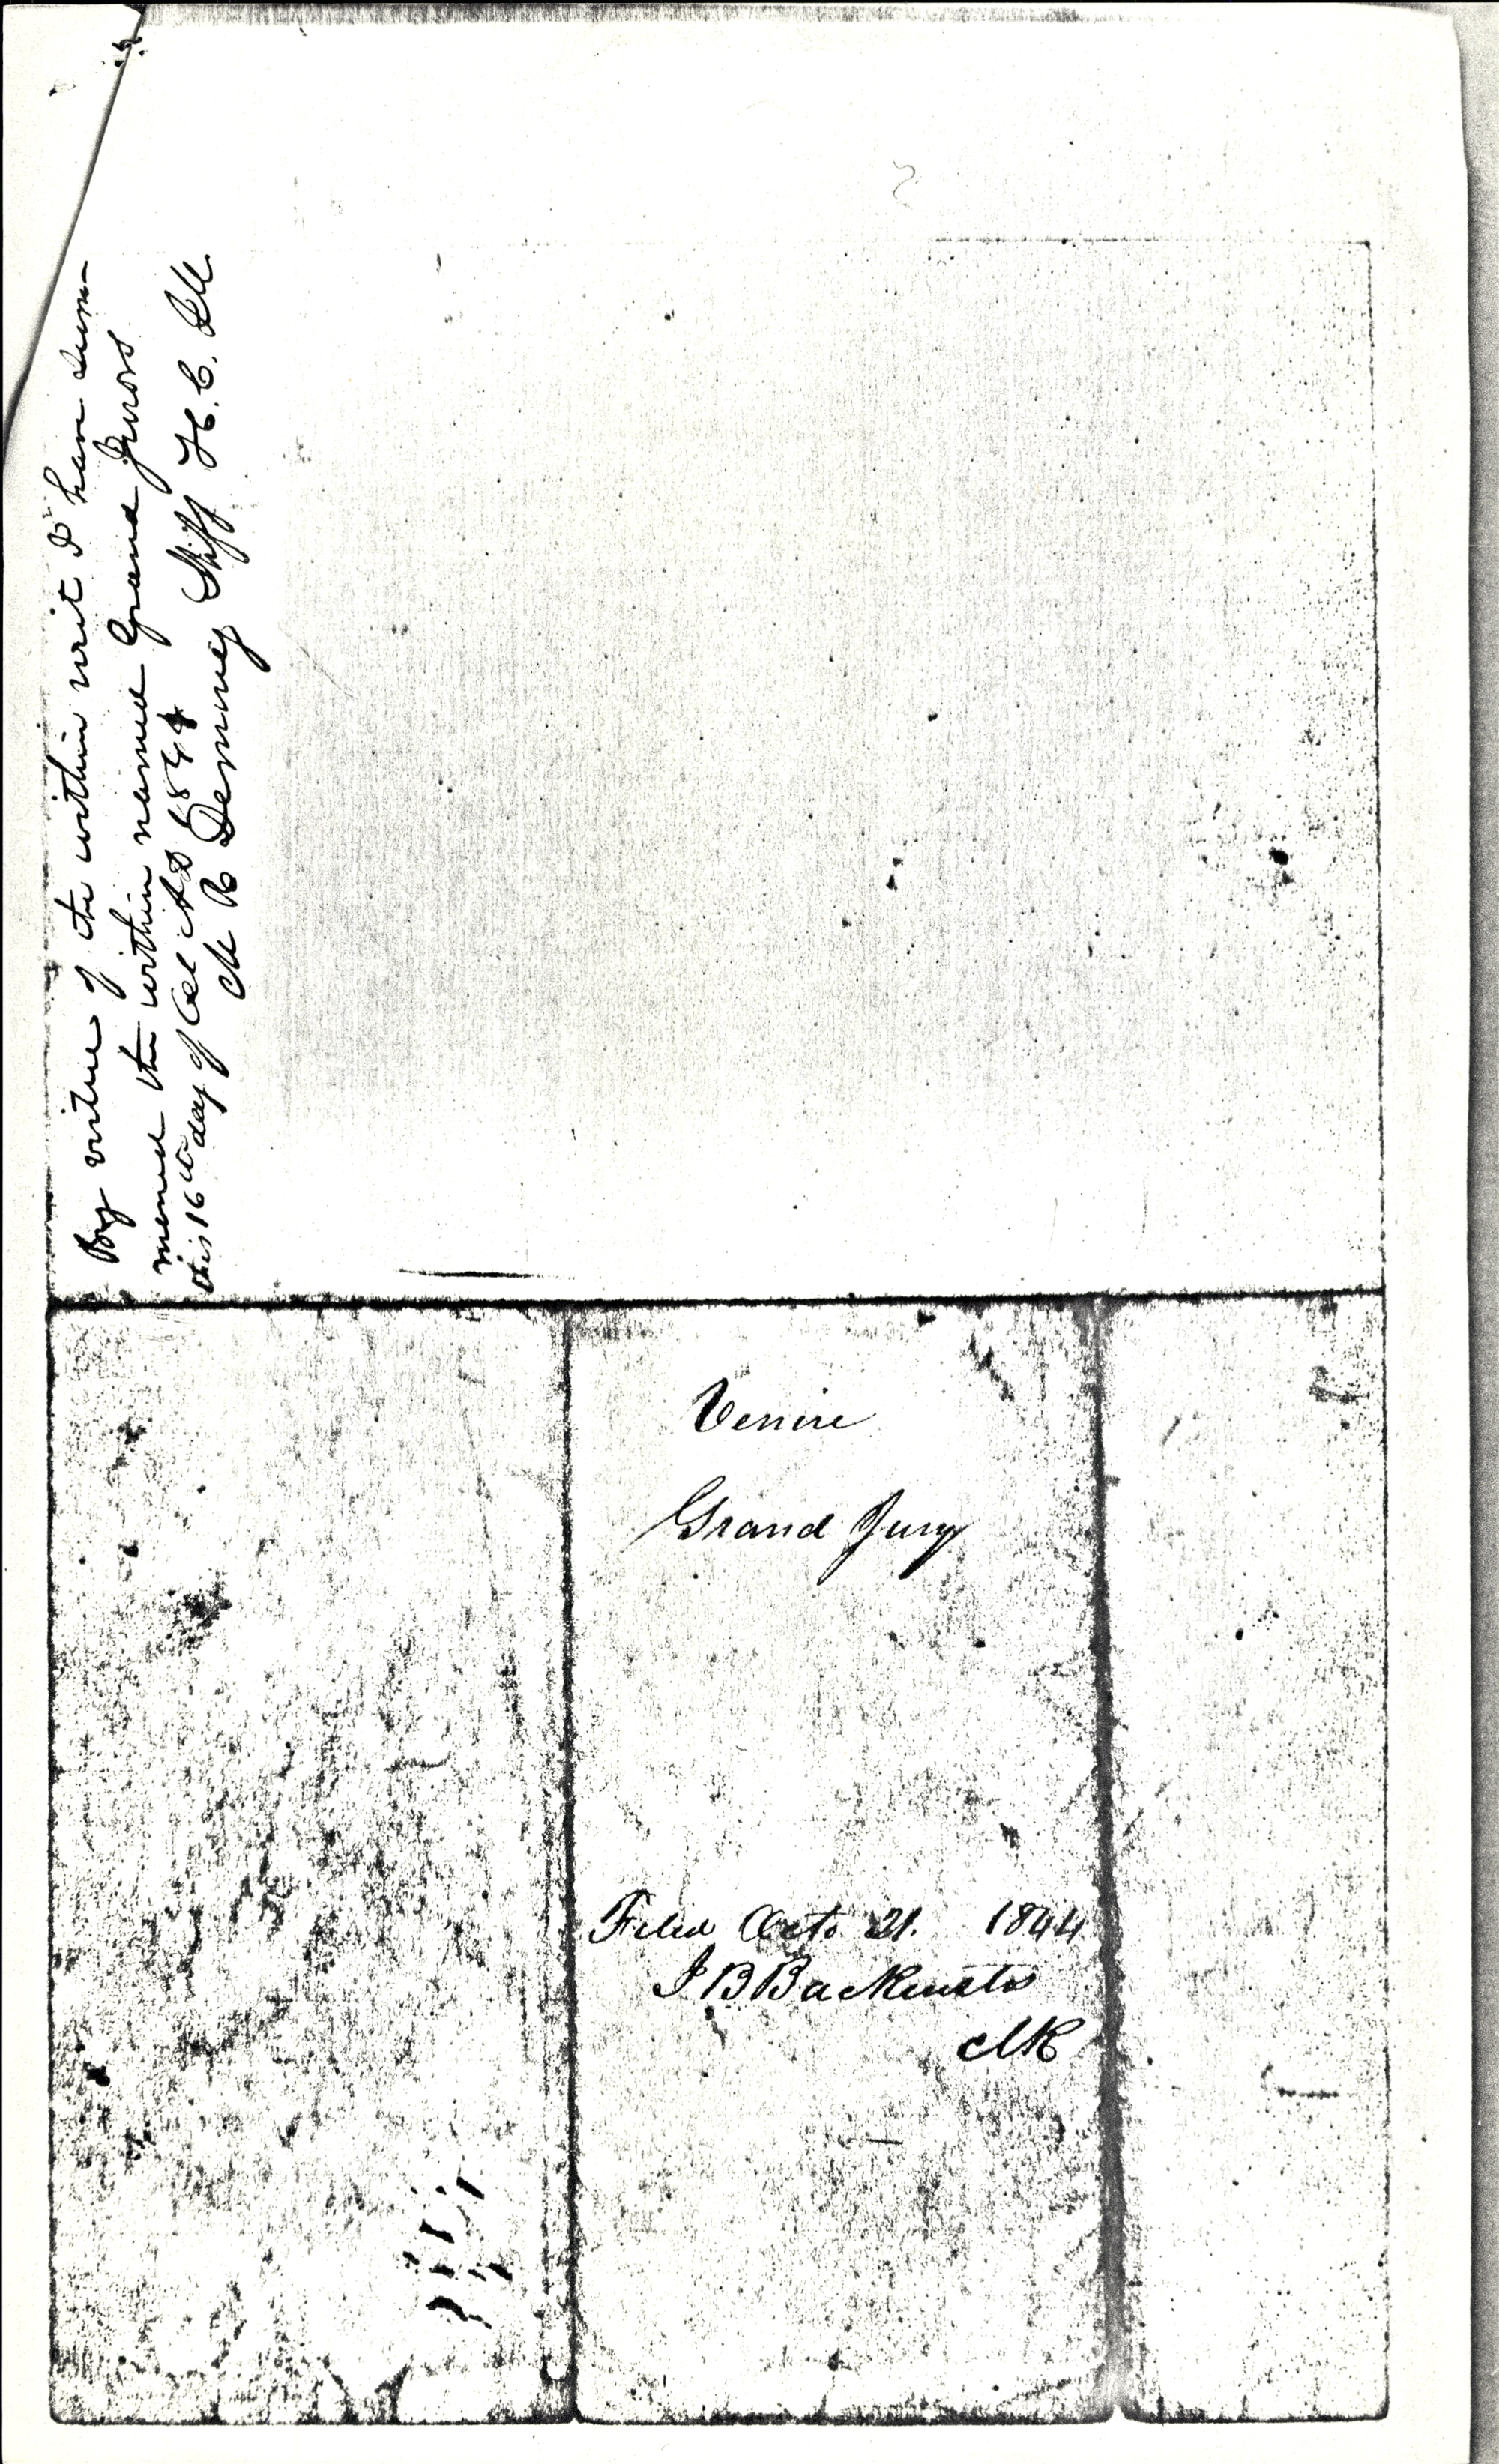 By virtue of the within writ I have sum-
moned the within named Grand Jurors
this 16th day of Oct AD 1844
M R Deming Shff H. C. Ill.
Venire
Grand Jury
Filed Octo 21. 1844
J B Backensto
clk